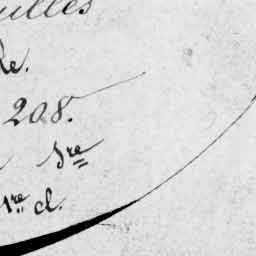 uilles
Re.
208.
Sre
1re cl.